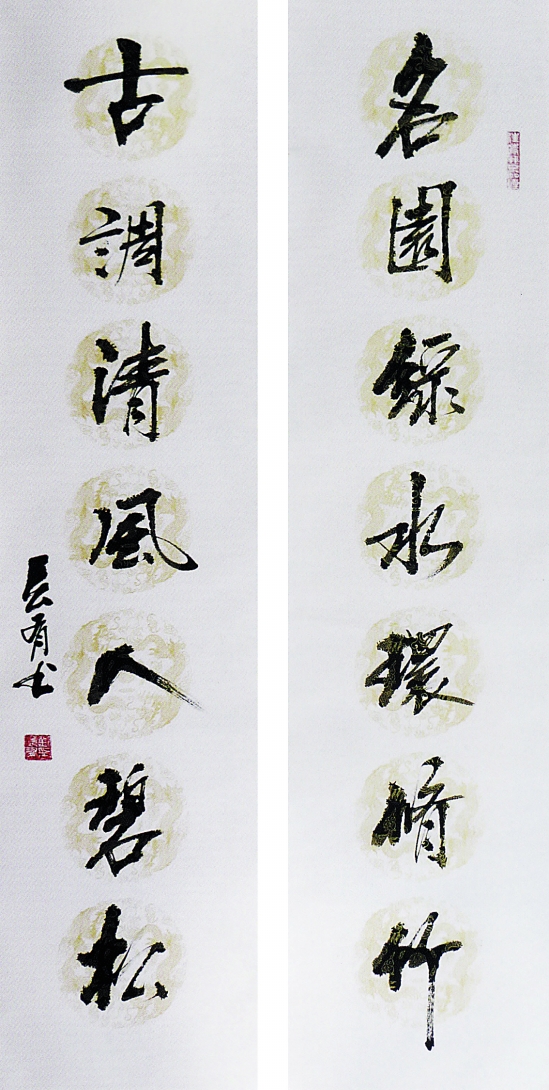 名園綠水環脩竹
古調清風入碧松
長有書